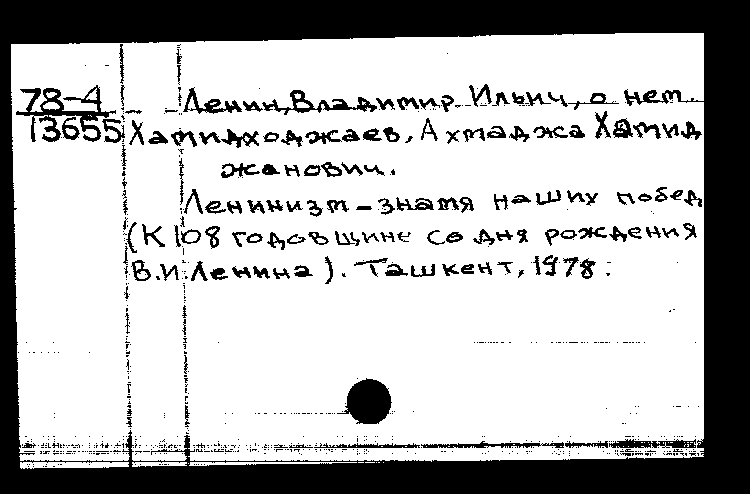 78-4
13655
Ленин, Владимир Ильич, о нем.
Хамидходжаев, Ахмаджа Хамид
жанович.
Ленинизм – знамя наших побед
(К 108 годовщине со дня рождения
В.И. Ленина). Ташкент, 1978.